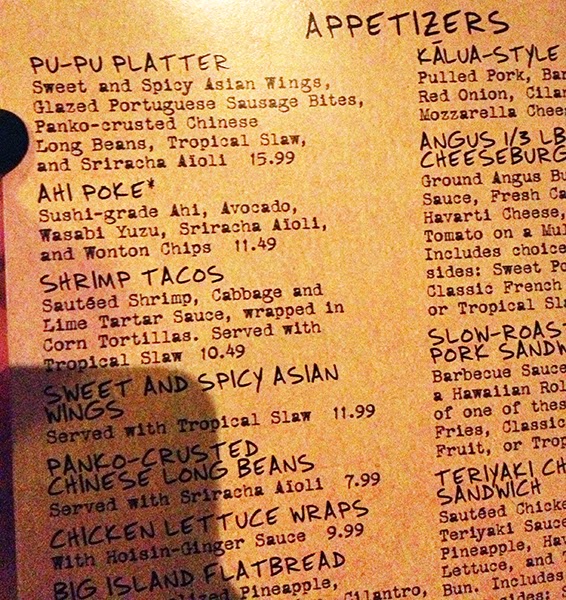 APPETIZERS
PU-PU PLATTER
Sweet and Spicy Asian Wings,
Glazed Portuguese Sausage Bites,
Panko-crusted Chinese
Long Beans, Tropical Slaw,
and Sriracha Aïoli 15.99
AHI POKE*
Sushi-grade Ahi, Avocado,
Wasabi Yuzu, Sriracha Aïoli,
and Wonton Chips 11.49
SHRIMP TACOS
Sautéed Shrimp, Cabbage and
Lime Tartar Sauce, wrapped in
Corn Tortillas. Served with
Tropical Slaw 10.49
SWEET AND SPICY ASIAN
WINGS
Served with Tropical Slaw 11.99
PANKO-CRUSTED
CHINESE LONG BEANS
Served with Sriracha Aïoli 7.99
CHICKEN LETTUCE WRAPS
With Hoisin-Ginger Sauce 9.99
BIG ISLAND FLATBREAD
Pineapple,
Cilantro,
KĀLUA-STYLE
Pulled Pork,
Red Onion,
Mozzarella
ANGUS 1/3
Ground Angus
Sauce, Fresh
Havarti Cheese,
Tomato on a
Includes choice
sides: Sweet
Classic French
or Tropical
PORK
Barbecue Sauce
a Hawaiian
of one of
Fries,
Fruit, or
TERIYAKI
SANDWICH
Sautéed
Teriyaki
Pineapple,
Lettuce, and
Bun. Includes